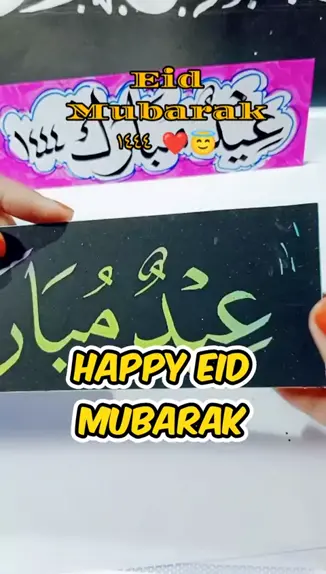 Eid
Mubarak
١٤٤٤ ❤️😇
عِيْدٌ مُبَارَك ١٤٤٤
عِيْدٌ مُبَارَ
HAPPY EID
MUBARAK